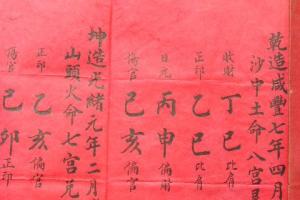 乾造咸豐七年四月
沙中土命八宫
敗財 丁巳 比肩
正印 乙巳 比肩
日元 丙申 偏財
傷官 己亥 偏官
坤造光緒元年二月
山頭火命七宫兌
正印 乙亥 偏官
傷官 己卯 正印